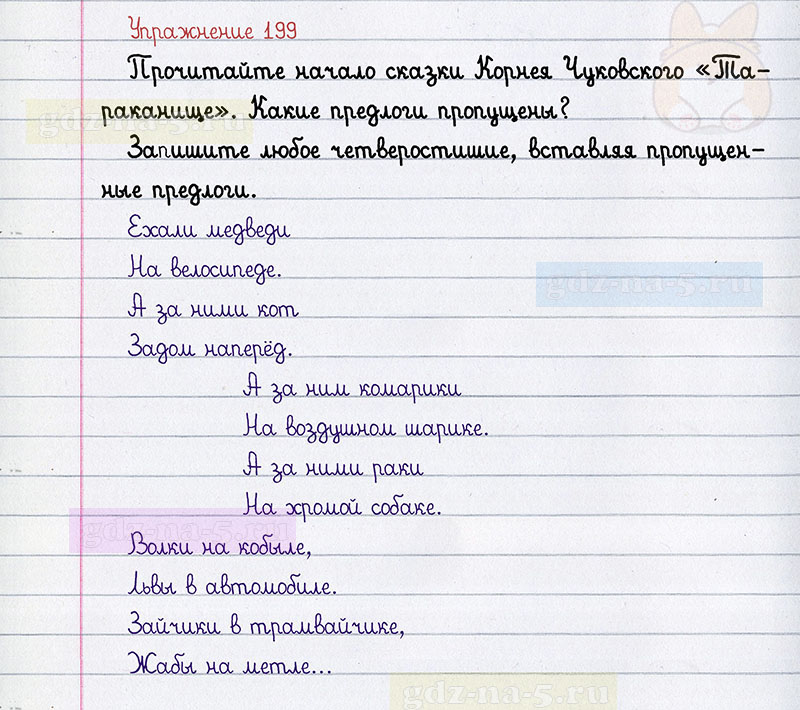 Упражнение 199
Прочитайте начало сказки Корнея Чуковского «Та-
раканище». Какие предлоги пропущены?
gdz-na-5.ru
Запишите любое четверостишие, вставляя пропущен-
ные предлоги.
Ехали медведи
На велосипеде.
gdz-na-5.ru
А за ними кот
Задом наперёд.
А за ним комарики
На воздушном шарике.
А за ними раки
На хромой собаке.
gdz-na-5.ru
Волки на кобыле,
Львы в автомобиле.
Зайчики в трамвайчике,
Жабы на метле...
gdz-na-5.ru